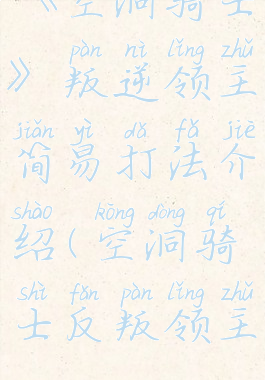 《空洞骑士
pàn nì lǐng zhǔ
》叛逆领主
jiǎn yì dǎ fǎ jiè
简易打法介
shào kōng dòng qí
绍(空洞骑
shì fǎn pàn lǐng zhǔ
士反叛领主